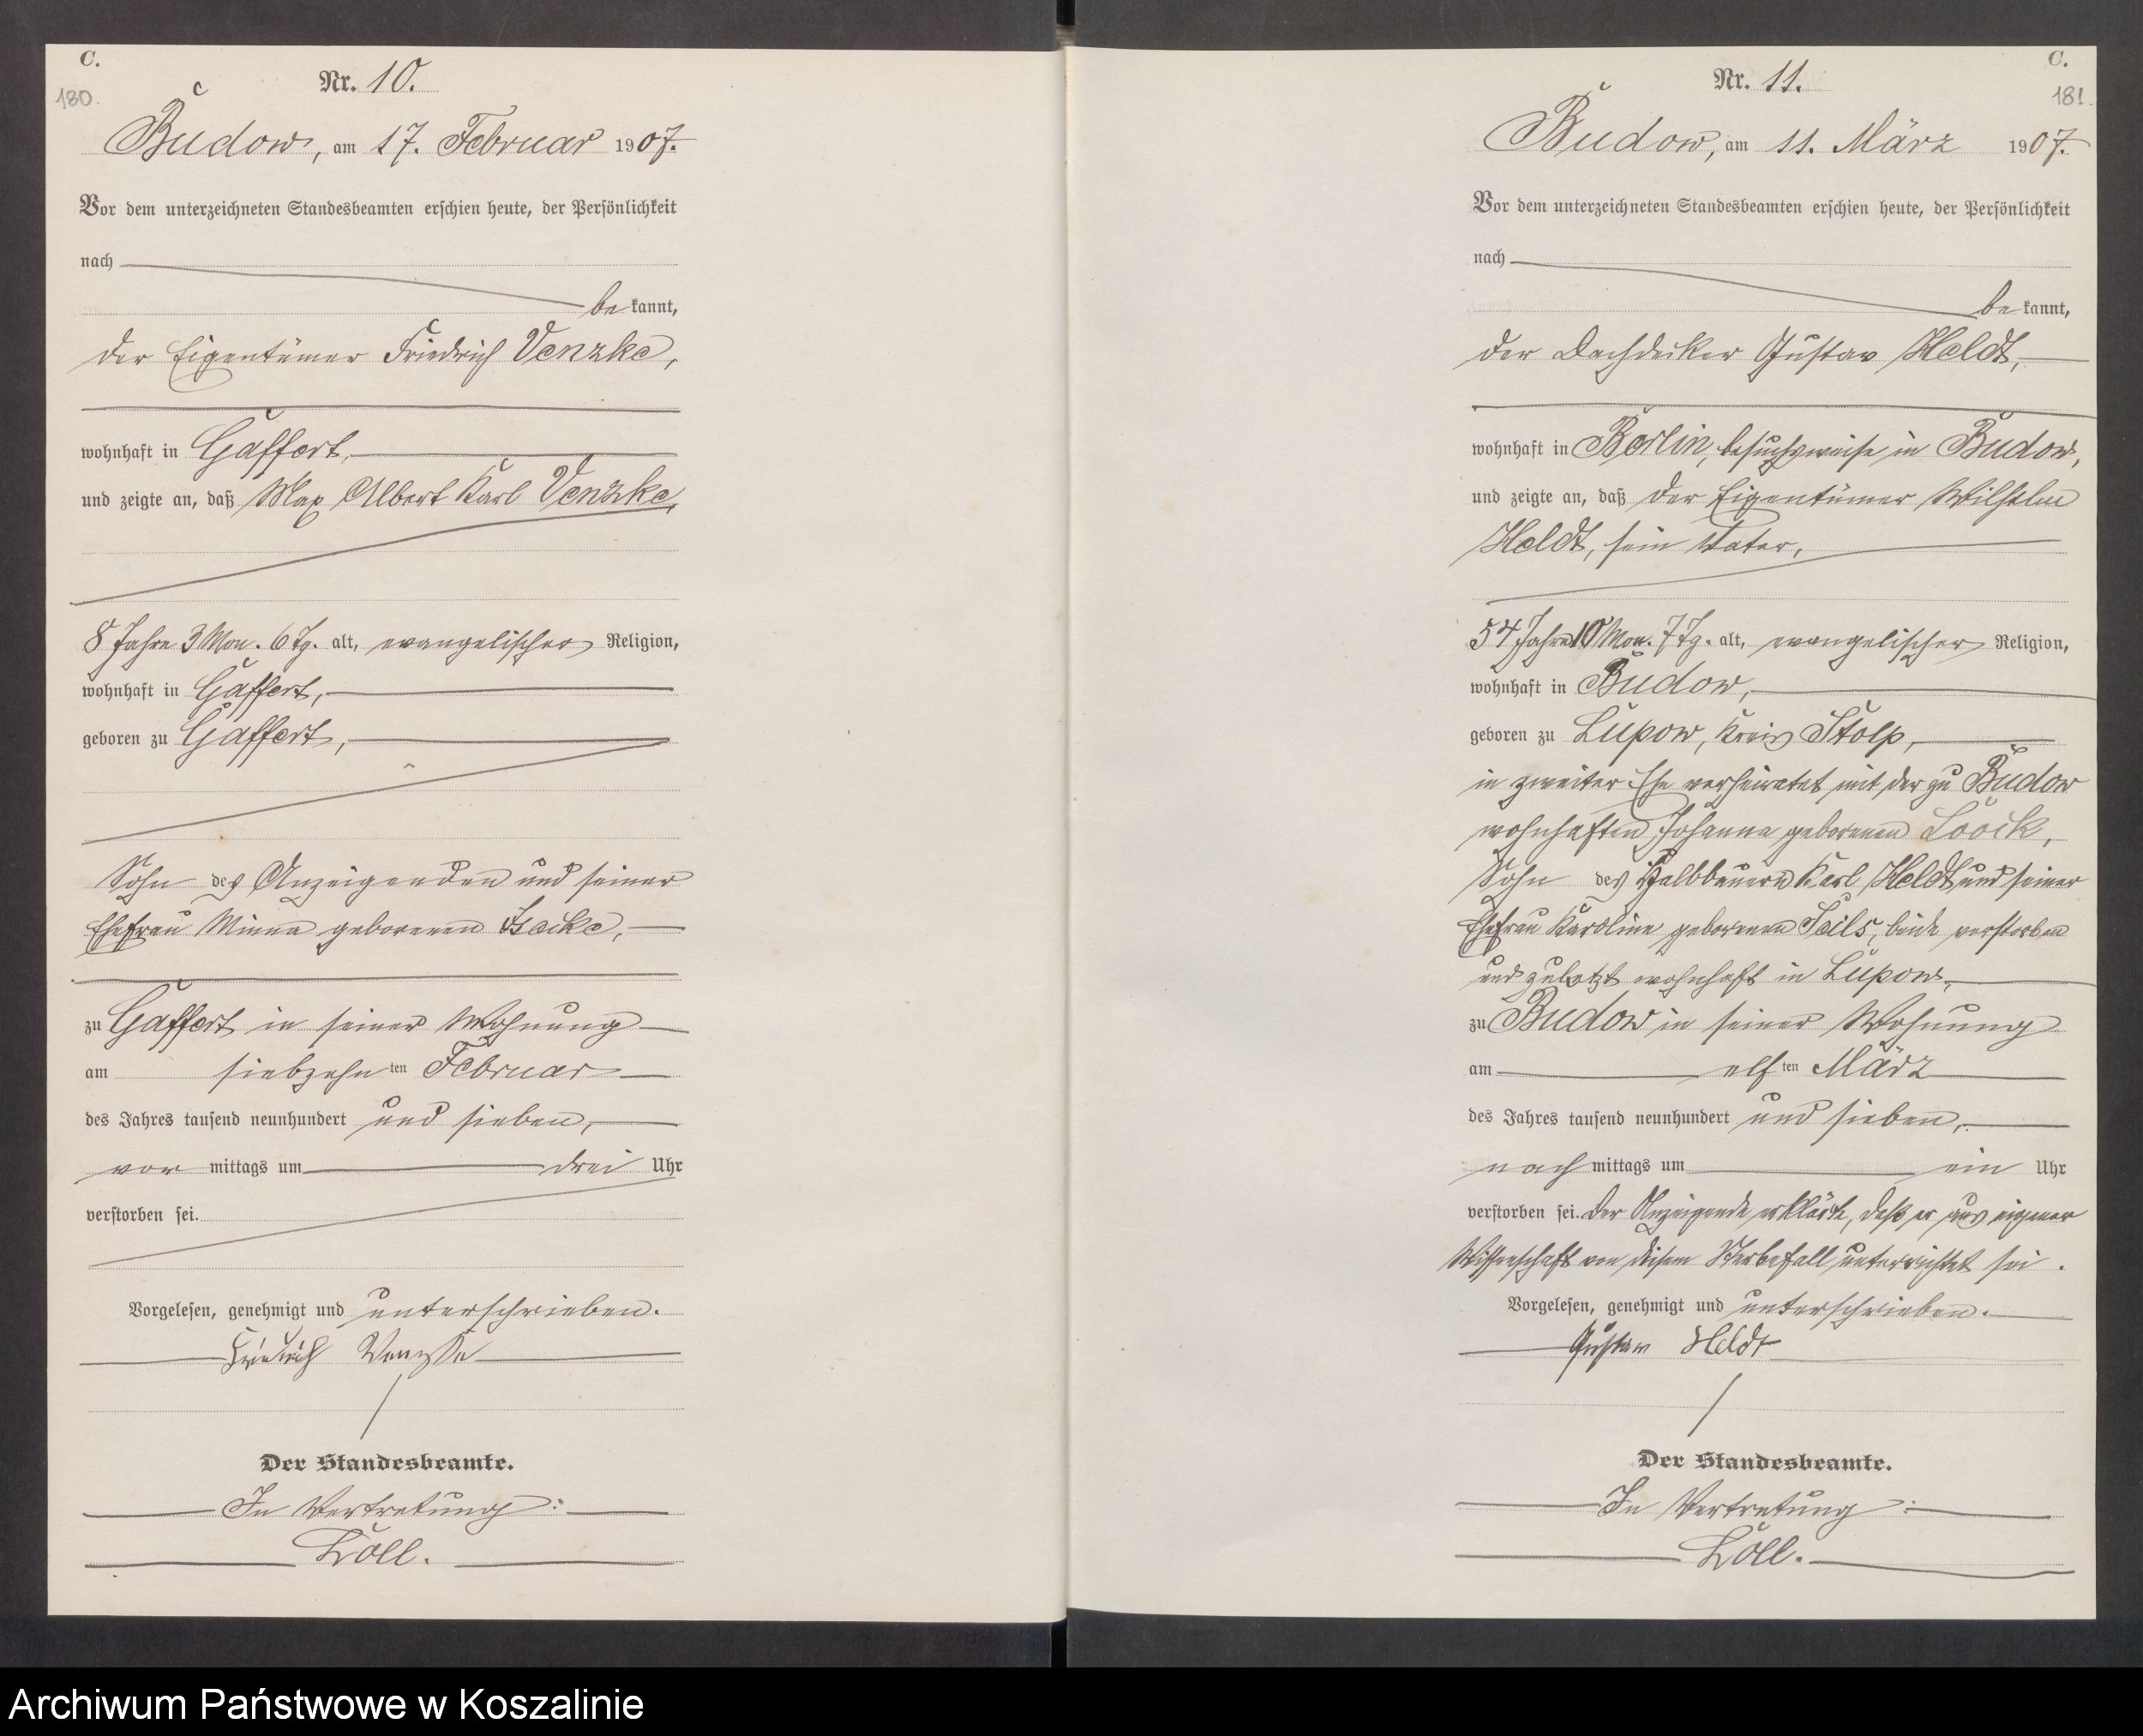 C.
180.
Nr. 10.
Budow, am 17. Februar 1907.
Vor dem unterzeichneten Standesbeamten erschien heute, der Persönlichkeit
nach
be kannt,
der Eigentümer Friedrich Venzke,
wohnhaft in Gaffert,
und zeigte an, daß Max Albert Karl Venzke,
8 Jahre 3 Mon. 6 Tg. alt, evangelischer Religion,
wohnhaft in Gaffert,
geboren zu Gaffert,
Sohn des Anzeigenden und seiner
Ehefrau Minna geborenen
zu Gaffert in seiner Wohnung
am siebzehn ten Februar
des Jahres tausend neunhundert und sieben,
vor mittags um drei Uhr
verstorben sei.
Vorgelesen, genehmigt und unterschrieben.
Friedrich Venzke
Der Standesbeamte.
In Vertretung:
Löll.
C.
181.
Nr. 11.
Budow, am 11. März 1907.
Vor dem unterzeichneten Standesbeamten erschien heute, der Persönlichkeit
nach
be kannt,
der Dachdecker Gustav Heldt,
wohnhaft in Berlin, besuchsweise in Budow,
und zeigte an, daß der Eigentümer Wilhelm
Heldt, sein Vater,
54 Jahre 10 Mon. 7 Tg. alt, evangelischer Religion,
wohnhaft in Budow,
geboren zu Lupow, Kreis Stolp,
in zweiter Ehe verheiratet mit der zu Budow
wohnhaften Johanna geborenen Loock,
Sohn des Halbbauern Karl Heldt und seiner
Ehefrau Karoline geborenen Seils, beide verstorben
und zuletzt wohnhaft in Lupow,
zu Budow in seiner Wohnung
am elf ten März
des Jahres tausend neunhundert und sieben,
nach mittags um ein Uhr
verstorben sei. Der Anzeigende erklärte, daß er aus eigener
Wissenschaft von diesem Sterbefall unterrichtet sei.
Vorgelesen, genehmigt und unterschrieben.
Gustav Heldt
Der Standesbeamte.
In Vertretung:
Löll.
Archiwum Państwowe w Koszalinie